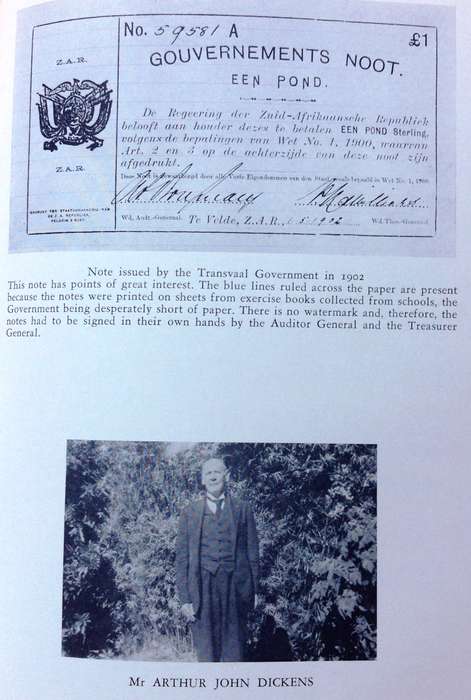 No. 59581 A
£1
Z.A.R.
GOUVERNEMENTS NOOT.
EEN POND.
De Regeering der Zuid-Afrikaansche Republiek
belooft aan houder dezes te betalen EEN POND Sterling,
volgens de bepalingen van Wet No. 1, 1900, waarvan
Art. 2 en 3 op de achterzijde van deze noot zijn
afgedrukt.
Z.A.R.
Deze Noot is gewaarborgd door alle Vaste Eigendommen van den Staat, bepaald in Wet No. 1, 1900.
GEDRUKT TER STAATSDRUKKERIJ VAN
DE Z. A. REPUBLIEK,
Wd. Audt.-Generaal. Te Velde, Z.A.R., 1.5.1902 Wd. Thes.-Generaal.
Note issued by the Transvaal Government in 1902
This note has points of great interest. The blue lines ruled across the paper are present
because the notes were printed on sheets from exercise books collected from schools, the
Government being desperately short of paper. There is no watermark and, therefore, the
notes had to be signed in their own hands by the Auditor General and the Treasurer
General.
Mr ARTHUR JOHN DICKENS